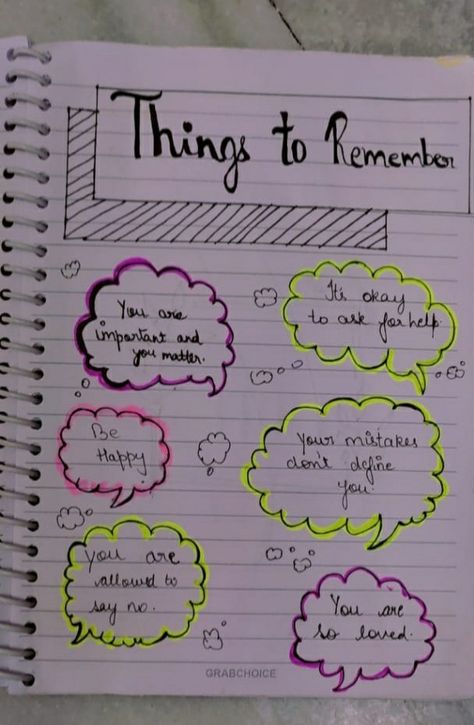 Things to Remember
You are
important and
you matter.
It's okay
to ask for help.
Be
Happy
Your mistakes
don't define
you.
You are
allowed to
say no.
You are
so loved.
GRABCHOICE